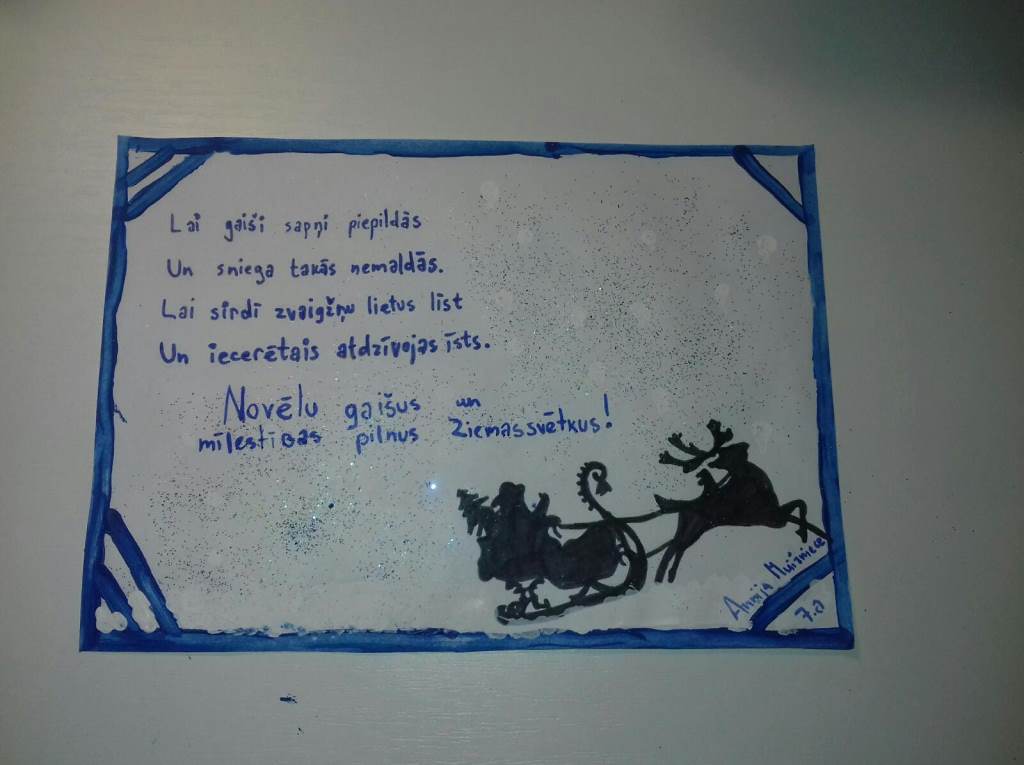 Lai gaiši sapņi piepildās
Un sniega takās nemaldās.
Lai sirdī zvaigžņu lietus līst
Un iecerētais atdzīvojas īsts.
Novēlu gaišus un
mīlestības pilnus Ziemassvētkus!
Annija Muižniece
7.a